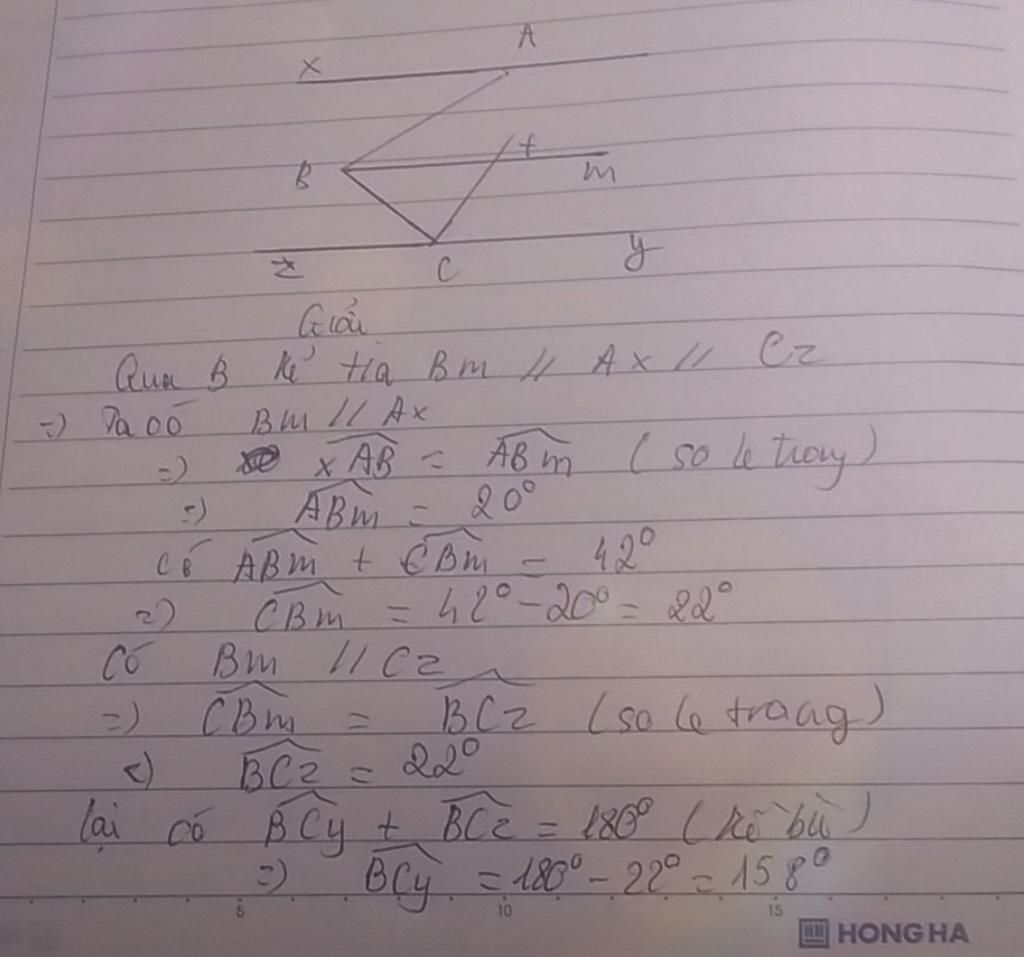 x A
B t m
z C y
Giải
Qua B kẻ tia Bm // Ax // Cz
=) Ta có Bm // Ax
=) xAB = ABm (so le trong)
=) ABm = 20°
Có ABm + CBm = 42°
=) CBm = 42° - 20° = 22°
Có Bm // Cz
=) CBm = BCz (so le traag)
=) BCz = 22°
lại có BCy + BCz = 180° (kề bù)
=) BCy = 180° - 22° = 158°
5 10 15
HONG HA